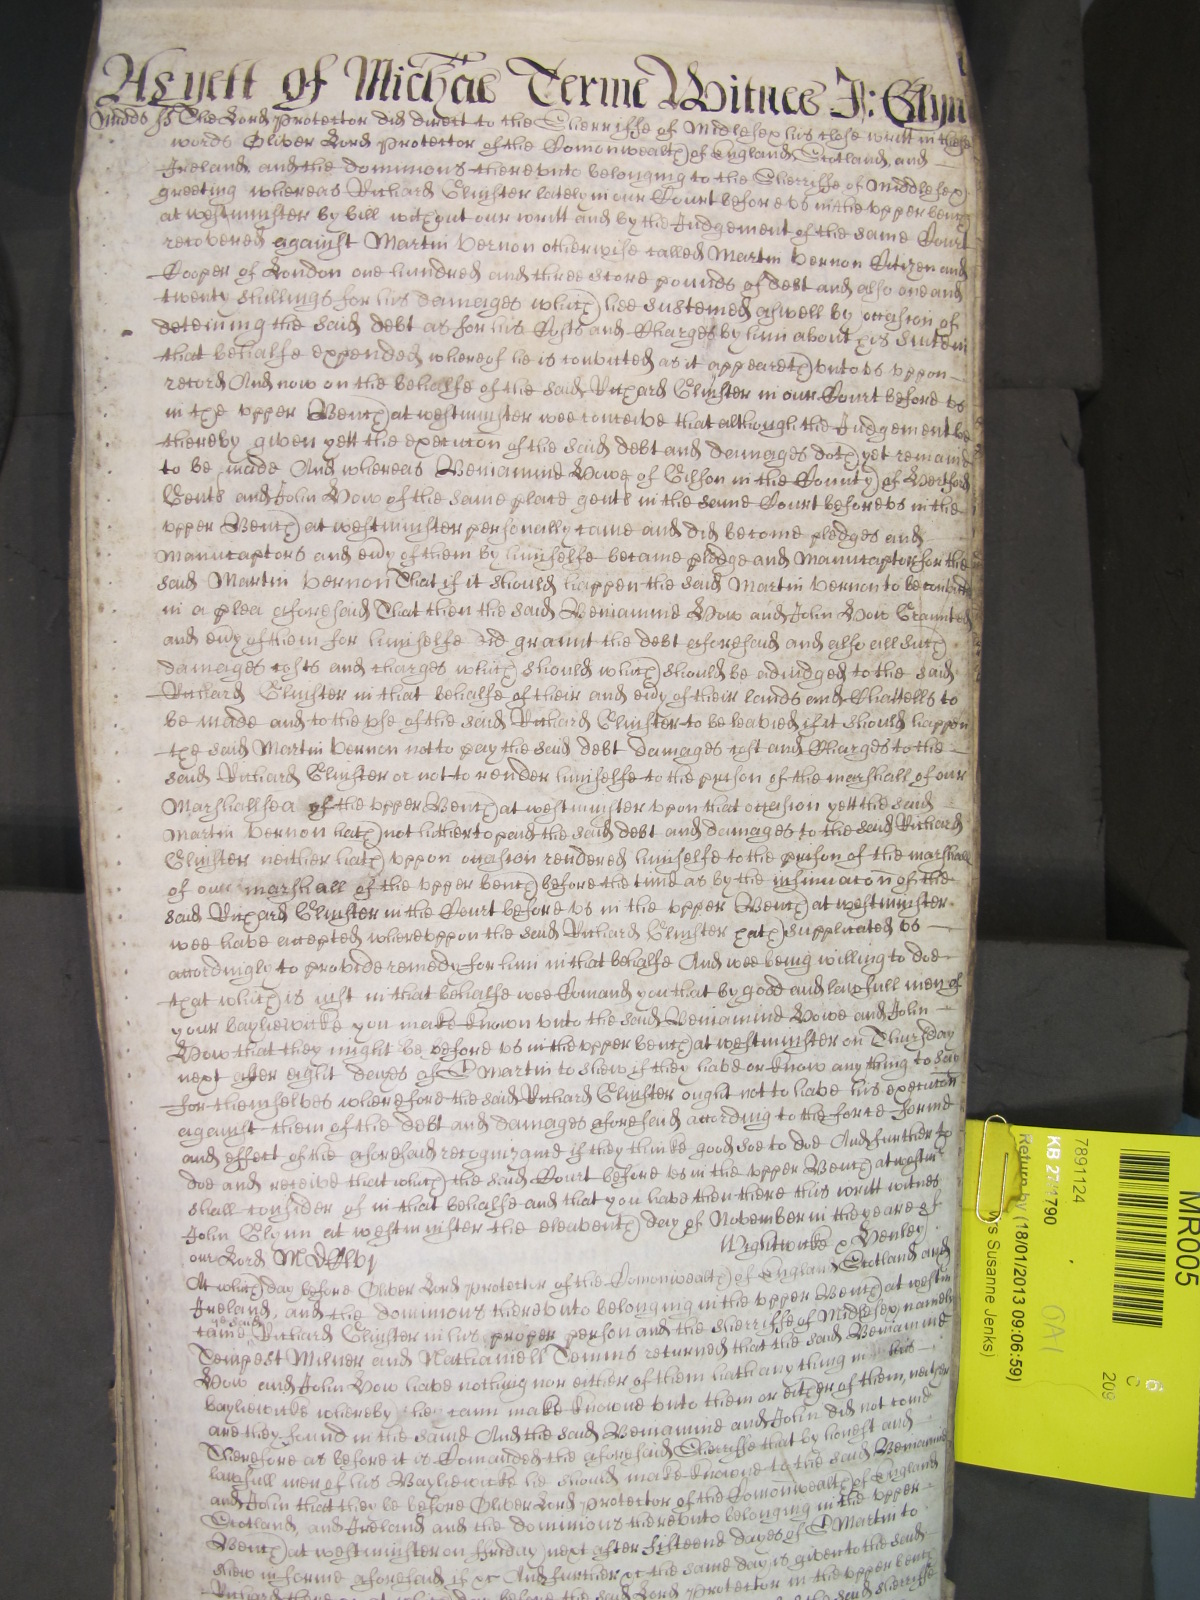 As yett of Michaes Terme Witnes J: Glyn
Midds ss The Lord Protector did direct to the Sherriffe of Middlesex his close writt in these
words Oliver Lord Protector of the Comonwealth of England Scotland and
Ireland and the dominions therevnto belonging to the Sherriffe of Middlesex
greeting whereas Richard Glinster lately in our Court before vs in the vpper bench
at westminster by bill without our writt and by the Judgement of the same Court
recovered against Martin Vernon otherwise called Martin Vernon Citizen and
Cooper of London one hundred and three score pounds of debt and also one and
twenty shillings for his damages which hee susteined aswell by occasion of
deteining the said debt as for his Costs and Charges by him about his suite in
that behalfe expended whereof he is convicted as it appeareth vnto vs vppon
record And now on the behalfe of the said Richard Glinster in our Court before vs
in the vpper Bench at westminster wee conceive that although the Judgement be
thereby given yett the execucon of the said debt and dammages doth yet remaine
to be made And whereas Beniamine Vowe of in the County of Hertford
Gent and John Vow of the same place gent in the same Court before vs in the
vpper Bench at westminster personally came and did become pledges and
Manucaptors and euy of them by himselfe became pledge and Manucaptor for the
said Martin Vernon That if it should happen the said Martin Vernon to be convicted
in a plea aforesaid That then the said Beniamine Vow and John Vow Graunted
and euy of them for himselfe did graunt the debt aforesaid and also all such
damages costs and charges which should which should be adiudged to the said
Richard Glinster in that behalfe of their and euy of their lands and Chattells to
be made and to the vse of the said Richard Glinster to be leavied if it should happen
the said Martin Vernon not to pay the said debt damages cost and Charges to the
said Richard Glinster or not to render himselfe to the prison of the marshall of our
Marshallsea of the vpper Bench at westminster vpon that occasion yett the said
Martin Vernon hath not hitherto paid the said debt and damages to the said Richard
Glinster neither hath vppon occasion rendered himselfe to the prison of the marshall
of our marshall of the vpper bench before the time as by the insinuacon of the
said Richard Glinster in the Court before vs in the vpper Bench at westminster
wee have accepted wherevppon the said Richard Glinster hath supplicated vs
accordingly to provide remedy for him in that behalfe And wee being willing to doe
that which is iust in that behalfe wee Comand you that by good and lawfull men of
your bayliewicke you make knowen vnto the said Beniamine Vowe and John
Vow that they might be before vs in the vpper bench at westminster on Thursday
next after eight dayes of St Martin to shew if they have or know any thing to say
for themselves wherefore the said Richard Glinster ought not to have his execucon
against them of the debt and damages aforesaid according to the force forme
and effect of the aforesaid recognizance if they thinke good soe to doe And further to
doe and receive that which the said Court before vs in the vpper Bench at westmr
shall consider of in that behalfe and that you have then there this writt witnes
John Glynn at westminster the eleaventh day of November in the yeare of
our Lord MDClvj Wightwicke & Henley
At which day before Oliver Lord Protector of the Comonwealth of England Scotland and
Ireland, and the dominions therevnto belonging in the vpper Bench at westmr
came ye said Richard Glinster in his proper person and the sherriffe of Middlesex, namely
Tempest Milner and Nathaniell Temms returned that the said Beniamine
Vow and John Vow have nothing nor either of them hath any thing in his
bayliewicke whereby he cann make knowne vnto them or either of them, neither
are they found in the same And the said Beniamine and John did not come
Therefore as before it is Comanded the aforesaid Sherriffe that by honest and
lawfull men of his Bayliewicke he should make knowne to the said Beniamine
and John that they be before Oliver Lord Protector of the Comonwealth of England
Scotland, and Ireland and the dominions therevnto belonging in the vpper
Bench at westminster on friday next after fifteene dayes of St Martin to
shew in forme aforesaid if &c And further &c the same day is given to the said
Richard there &c at which day before the said Lord Protector in the vpper bench
MR005
7891124
KB 27/1790
Return by (18/01/2013 09:06:59)
Susanne Jenks)
6
C
209